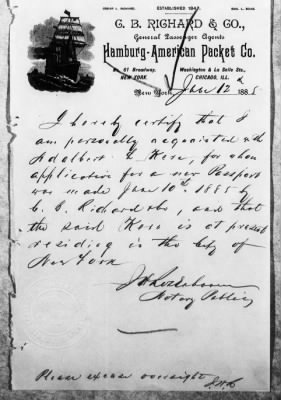 OSCAR L. RICHARD. ESTABLISHED 1847. GEO. L. BOAS.
C. B. RICHARD & CO.,
General Passenger Agents
Hamburg-American Packet Co.
61 Broadway, Washington & La Salle Sts.,
NEW YORK CHICAGO, ILL.
New York, June 12 1885
I hereby certify that I
am personally acquainted with
Adalbert L. Kese, for whom
application for a new Passport
was made June 10th 1885 by
C. B. Richard & Co, and that
the said Kese is at present
residing in the City of
New York
Notary Public
Please excuse oversight